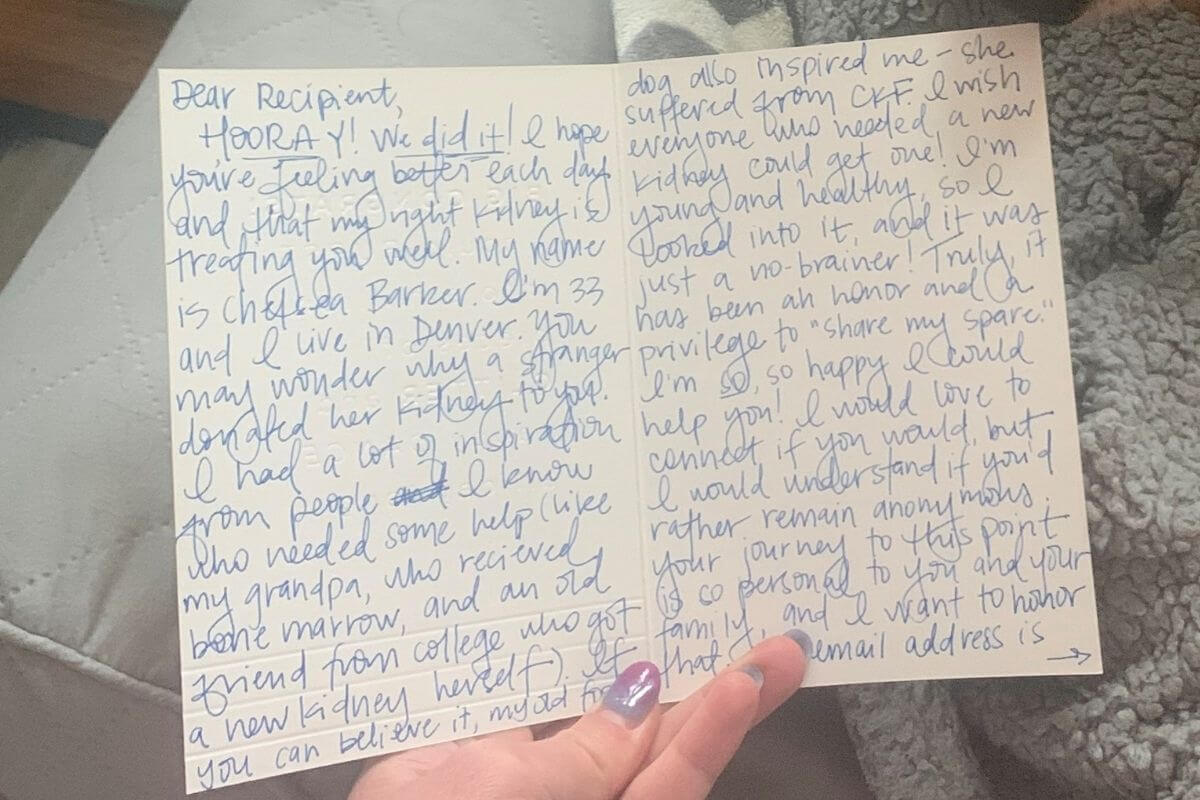 Dear Recipient,
HOORAY! We did it! I hope
you're feeling better each day
and that my right kidney is
treating you well. My name
is Chelsea Barker. I'm 33
and I live in Denver. You
may wonder why a stranger
donated her kidney to you.
I had a lot of inspiration
from people I know
who needed some help (like
my grandpa, who recieved
bone marrow, and an old
friend from college who got
a new kidney herself). If
you can believe it, my old
dog also inspired me - she
suffered from CKF. I wish
everyone who needed a new
kidney could get one! I'm
young and healthy, so I
looked into it, and it was
just a no-brainer! Truly, it
has been an honor and a
privilege to "share my spare."
I'm so, so happy I could
help you! I would love to
connect if you would, but
I would understand if you'd
rather remain anonymous.
Your journey to this point
is so personal to you and your
family, and I want to honor
that. email address is
→